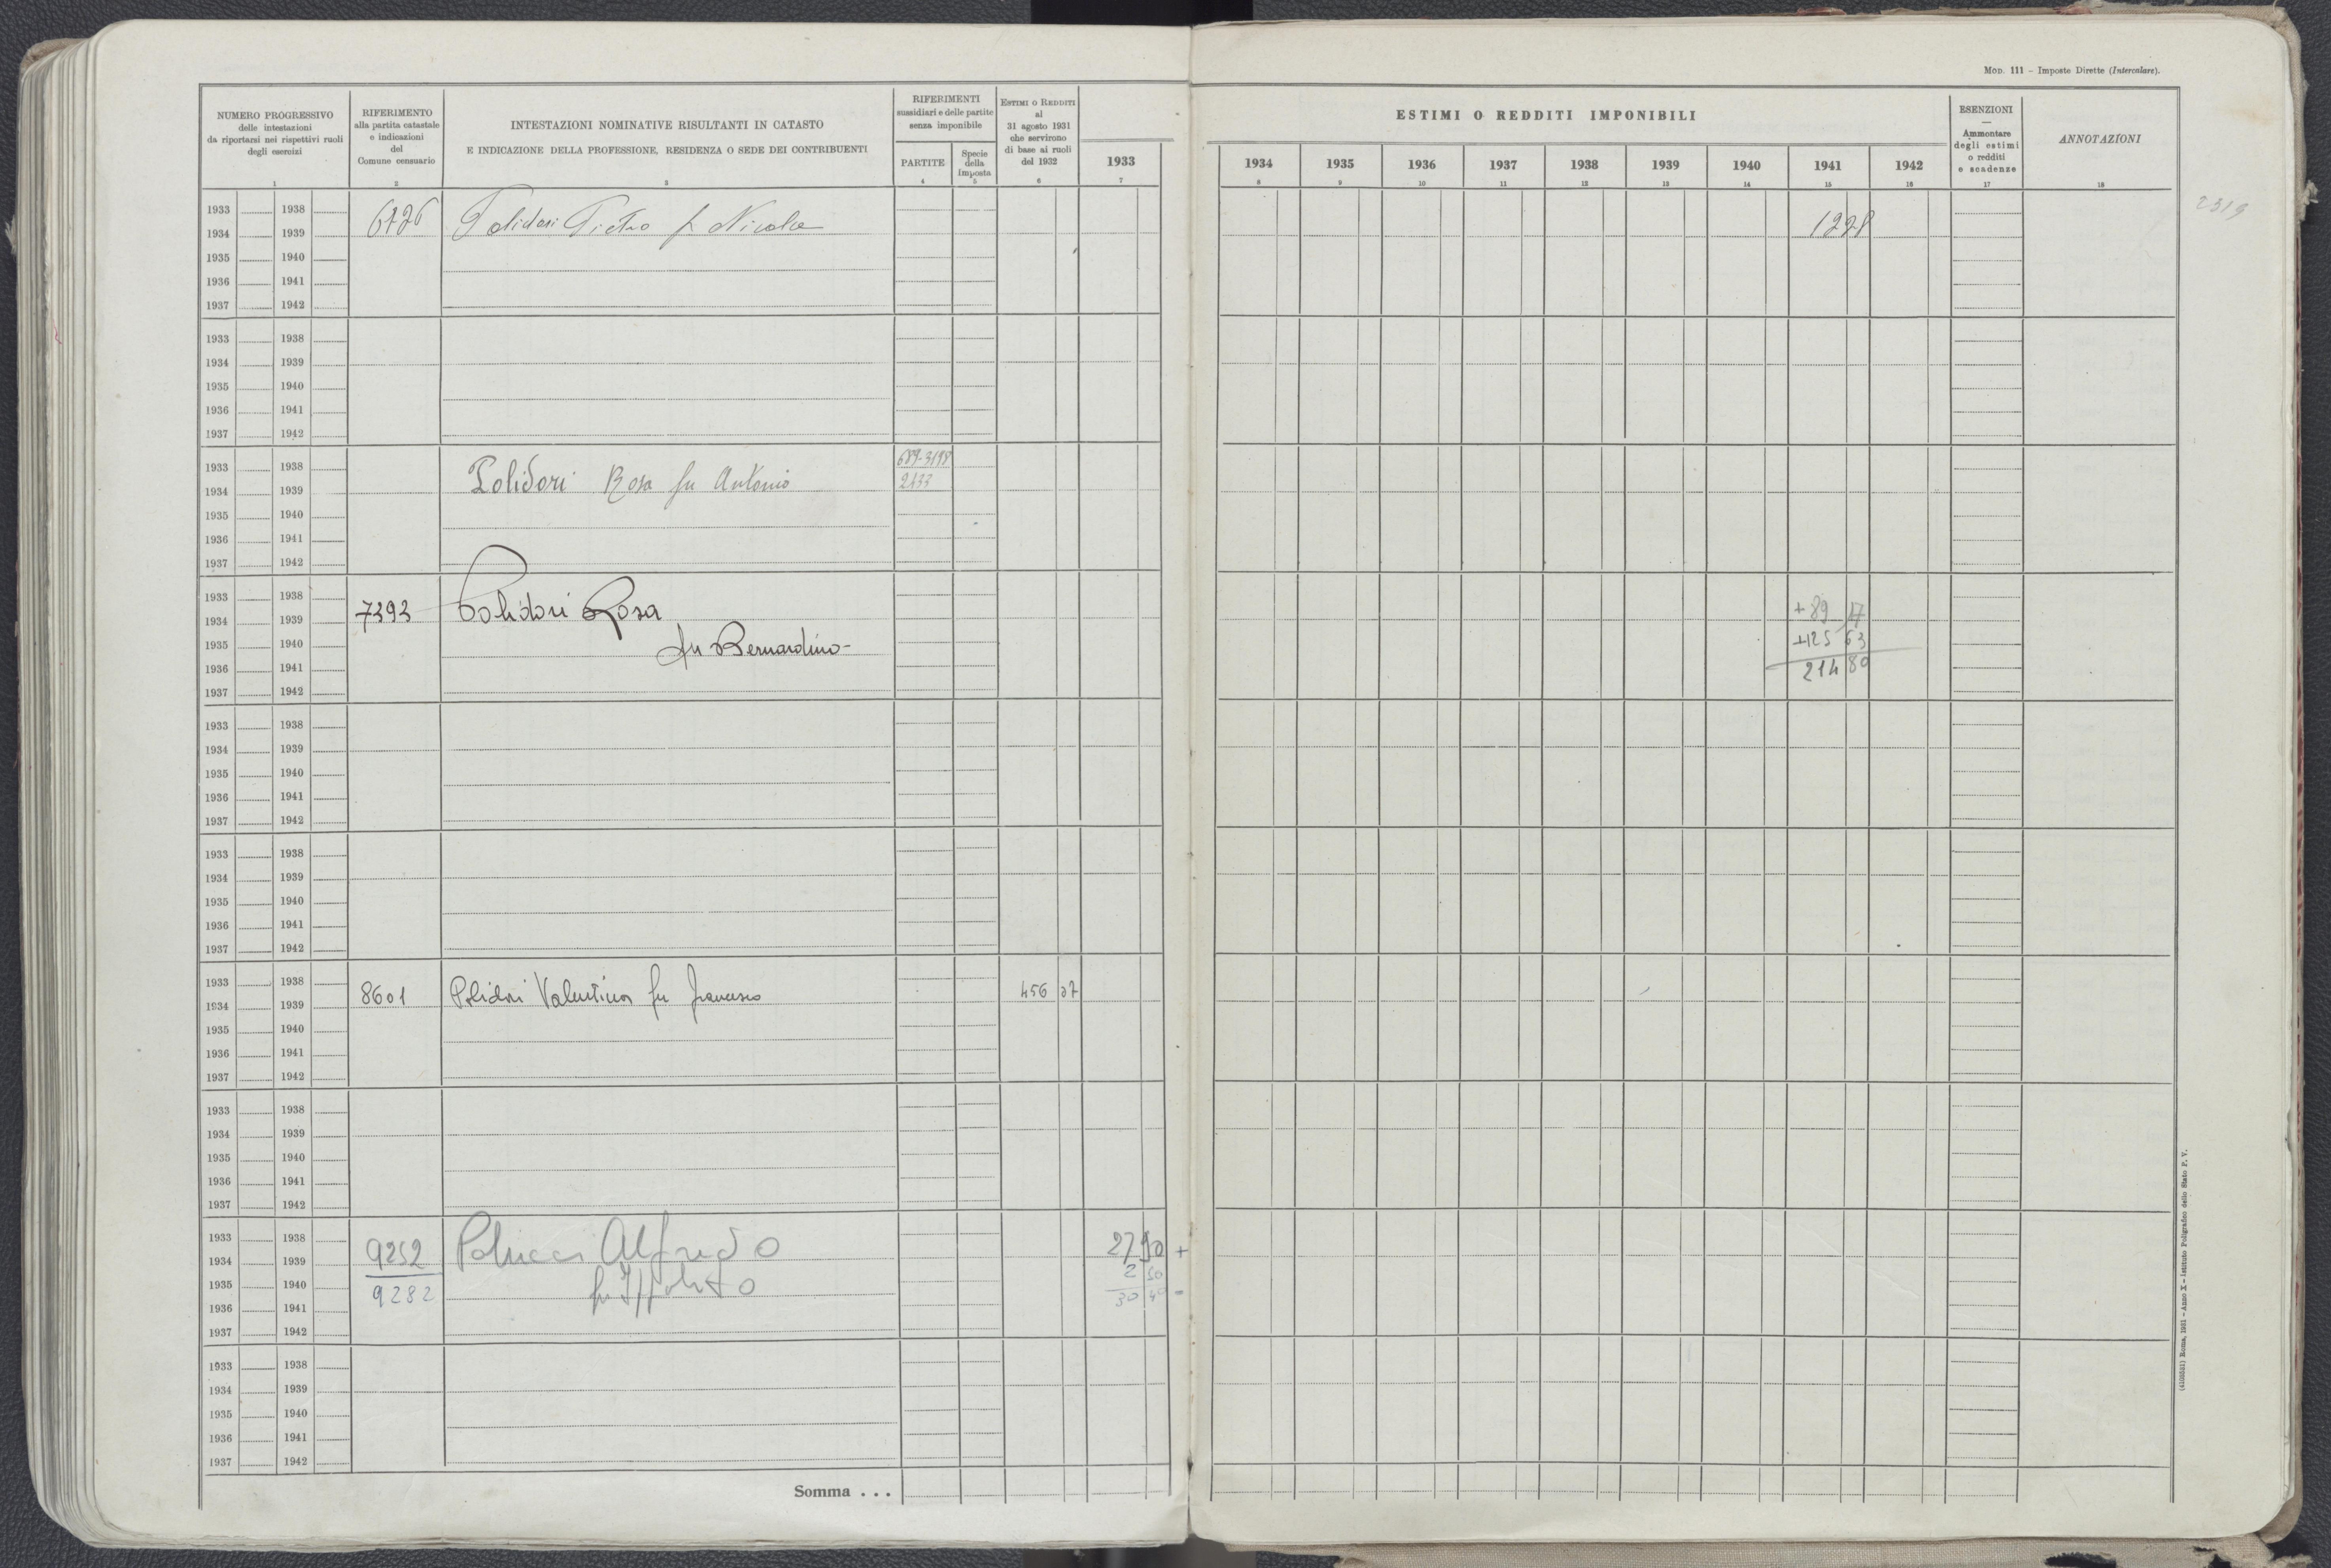 MOD. 111 – Imposte Dirette (Intercalare).
NUMERO PROGRESSIVO
delle intestazioni
da riportarsi nei rispettivi ruoli
degli esercizi
1
RIFERIMENTO
alla partita catastale
e indicazioni
del
Comune censuario
2
INTESTAZIONI NOMINATIVE RISULTANTI IN CATASTO
E INDICAZIONE DELLA PROFESSIONE, RESIDENZA O SEDE DEI CONTRIBUENTI
3
RIFERIMENTI
sussidiari e delle partite
senza imponibile
PARTITE
4
Specie
della
Imposta
5
ESTIMI O REDDITI
al
31 agosto 1931
che servirono
di base ai ruoli
del 1932
6
1933
7
ESTIMI O REDDITI IMPONIBILI
1934 1935 1936 1937 1938 1939 1940 1941 1942
8 9 10 11 12 13 14 15 16
ESENZIONI
—
Ammontare
degli estimi
o redditi
e scadenze
17
ANNOTAZIONI
18
2319
1933 1938
1934 1939 6726 Polidori Pietro fu Nicola 1228
1935 1940
1936 1941
1937 1942
1933 1938
1934 1939
1935 1940
1936 1941
1937 1942
1933 1938 689-3198
1934 1939 Polidori Rosa fu Antonio 2433
1935 1940
1936 1941
1937 1942
1933 1938
1934 1939 7393 Polidori Rosa +89 17
1935 1940 fu Bernardino +125 63
1936 1941 214 80
1937 1942
1933 1938
1934 1939
1935 1940
1936 1941
1937 1942
1933 1938
1934 1939
1935 1940
1936 1941
1937 1942
1933 1938
1934 1939 8601 Polidori Valentino fu Francesco 456 27
1935 1940
1936 1941
1937 1942
1933 1938
1934 1939
1935 1940
1936 1941
1937 1942
1933 1938
1934 1939 9252 Polucci Alfredo 27 90 +
1935 1940 fu Ippolito 2 50
1936 1941 9282 30 40 =
1937 1942
1933 1938
1934 1939
1935 1940
1936 1941
1937 1942
Somma . . .
(4103331) Roma, 1931 – Anno X – Istituto Poligrafico dello Stato P. V.